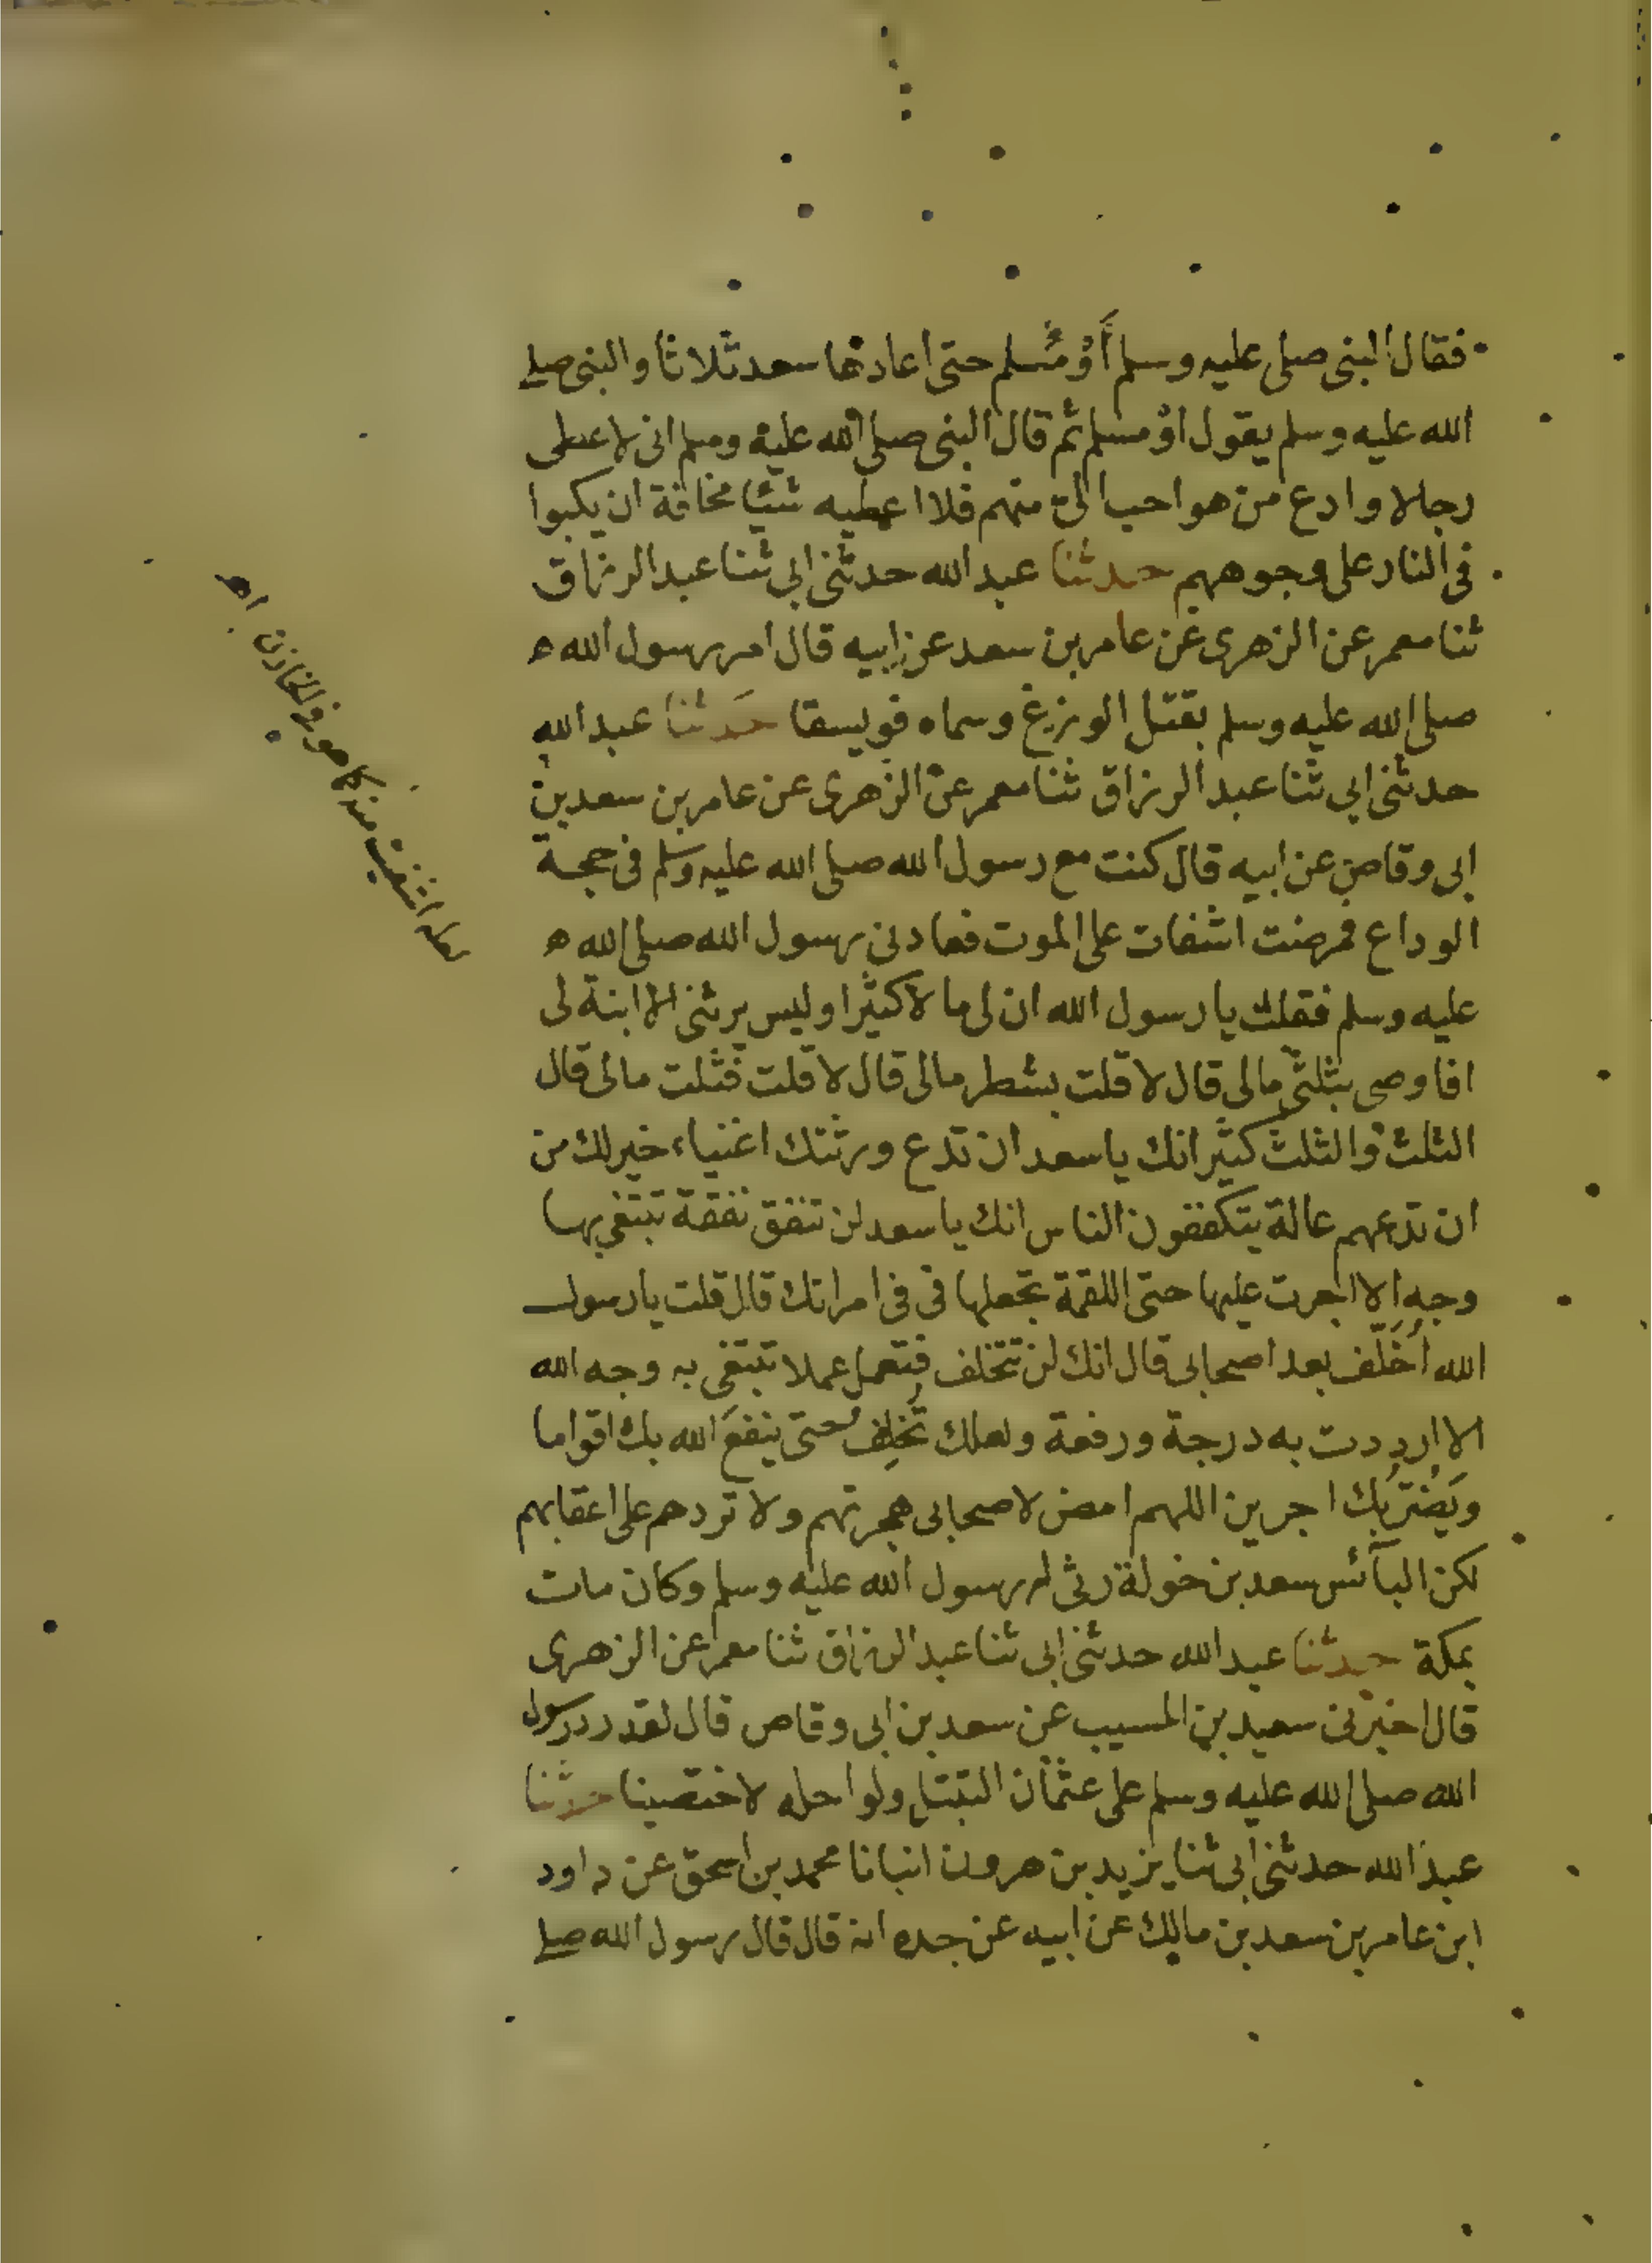 فقال النبى صلى عليه وسلم أَوْ مُسلم حتى اعادها سعد ثلاثا والنبى صلى
الله عليه وسلم يقول اوْ مسلم ثم قال النبى صلى الله عليه وسلم انى لاعطى
رجالا وادع من هو احب الىّ منهم فلا اعطيه شيئا مخافة ان يكبوا
فى النار على وجوههم حدثنا عبد الله حدثنى ابى ثنا عبد الرزاق
ثنا معمر عن الزهرى عن عامر بن سعد عن ابيه قال امر رسول الله ه
صلى الله عليه وسلم بقتل الوزغ وسماه فويسقا حدثنا عبد الله
حدثنى ابى ثنا عبد الرزاق ثنا معمر عن الزهرى عن عامر بن سعد بن
ابى وقاص عن ابيه قال كنت مع رسول الله صلى الله عليه وسلم فى حجة
الوداع فمرضت اشفات على الموت فعادنى رسول الله صلى الله ه
عليه وسلم فقلت يا رسول الله ان لى مالا كثيرا وليس يرثنى الا ابنة لى
افاوصى بثلثى مالى قال لا قلت بشطر مالى قال لا قلت فثلث مالى قال
الثلث والثلث كثير انك يا سعد ان تدع ورثتك اغنياء خير لك من
ان تدعهم عالة يتكففون الناس انك يا سعد لن تنفق نفقة تبتغى بها
وجه الا اجرت عليها حتى اللقمة تجعلها فى فى امراتك قال قلت يا رسول
الله أُخَلَّف بعد اصحابى قال انك لن تتخلف فتعمل عملا تبتغى به وجه الله
الا ازددت به درجة ورفعة ولعلك تُخلف حتى ينفعَ الله بك اقواما
ويَضُرَّ بك اخرين اللهم امض لاصحابى هجرتهم ولا تردهم على اعقابهم
لكن البآئس سعد بن خولة رثى له رسول الله عليه وسلم وكان مات
بمكة حدثنا عبد الله حدثنى ابى ثنا عبد الرزاق ثنا معمر عن الزهرى
قال اخبرنى سعيد بن المسيب عن سعد بن ابى وقاص قال لقد رد رسول
الله صلى الله عليه وسلم على عثمان التبتل ولو احله لاختصينا حدثنا
عبد الله حدثنى ابى ثنا يزيد بن هرون انبانا محمد بن اسحق عن داود
ابن عامر بن سعد بن مالك عن ابيه عن جده انه قال قال رسول الله صلى
لعله اشفيت منه كما هو فى الخازن اهـ